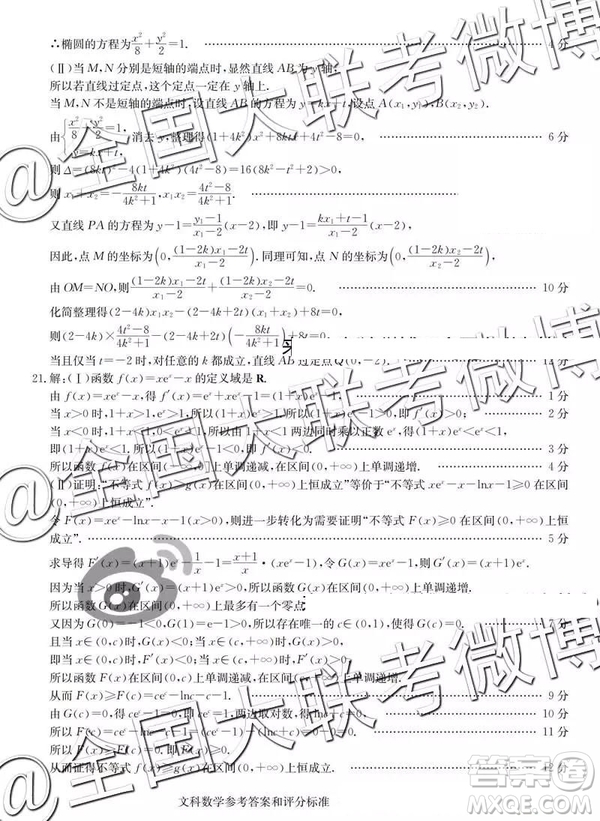 ∴椭圆的方程为x²/8+y²/2=1. 4分
(Ⅱ)当M,N分别是短轴的端点时,显然直线AB为y轴,
所以若直线过定点,这个定点一定在y轴上.
当M,N不是短轴的端点时,设直线AB的方程为y=kx+t,设点A(x₁,y₁),B(x₂,y₂).
由{x²/8+y²/2=1, y=kx+t, 消去y,整理得(1+4k²)x²+8ktx+4t²-8=0, 6分
则Δ=(8kt)²-4(1+4k²)(4t²-8)=16(8k²-t²+2)>0,
则x₁+x₂=-8kt/(4k²+1),x₁x₂=(4t²-8)/(4k²+1).
又直线PA的方程为y-1=(y₁-1)/(x₁-2)(x-2),即y-1=(kx₁+t-1)/(x₁-2)(x-2),
因此,点M的坐标为(0,((1-2k)x₁-2t)/(x₁-2)).同理可知,N的坐标为(0,((1-2k)x₂-2t)/(x₂-2)),
由OM=NO,则((1-2k)x₁-2t)/(x₁-2)+((1-2k)x₂-2t)/(x₂-2)=0. 10分
化简整理得(2-4k)x₁x₂-(2-4k+2t)(x₁+x₂)+8t=0,
则(2-4k)×(4t²-8)/(4k²+1)-(2-4k+2t)(-8kt/(4k²+1))
当且仅当t=-2时,对任意的k都成立,直线AB过定点Q(0,-2). 12分
21.解:(Ⅰ)函数f(x)=xeˣ-x的定义域是R.
由f(x)=xeˣ-x,得f′(x)=(1+x)eˣ-1. 1分
当x>0时,1+x>1,eˣ>1,所以(1+x)eˣ>1,所以f′(x)=(1+x)eˣ-1>0;
当x<0时,1+x<1,0<eˣ<1,所以由1+x<1两边同时乘以正数eˣ,得(1+x)eˣ<eˣ<1,
即(1+x)eˣ<1,所以f′(x)=(1+x)eˣ-1<0. 3分
所以函数f(x)在区间(-∞,0)上单调递减,在区间(0,+∞)上单调递增. 4分
(Ⅱ)证明:“不等式f(x)≥g(x)在区间(0,+∞)上恒成立”等价于“不等式xeˣ-x-lnx-1≥0在区间(0,+∞)上恒成立”.
令F(x)=xeˣ-lnx-x-1(x>0),则进一步转化为需要证明“不等式F(x)≥0在区间(0,+∞)上恒
成立”. 5分
求导得F′(x)=(x+1)eˣ-1/x-1=(x+1)/x·(xeˣ-1),令G(x)=xeˣ-1,则G′(x)=(x+1)eˣ.
因为当x>0时,G′(x)>0,所以函数G(x)在区间(0,+∞)上单调递增.
所以函数G(x)在区间(0,+∞)上最多有一个零点.
又因为G(0)=-1<0,G(1)=e-1>0,所以存在唯一的c∈(0,1),使得G(c)=0. 7分
且当x∈(0,c)时,G(x)<0;当x∈(c,+∞)时,G(x)>0.
即当x∈(0,c)时,F′(x)<0;当x∈(c,+∞)时,F′(x)>0.
所以函数F(x)在区间(0,c)上单调递减,在区间(c,+∞)上单调递增.
从而F(x)≥F(c)=ceᶜ-lnc-c-1. 9分
由G(c)=0,得ceᶜ-1=0,即ceᶜ=1,两边取对数,得lnc+c=0. 10分
所以F(c)=ceᶜ-lnc-c-1=(ceᶜ-1)-(lnc+c)=0-0=0. 11分
所以F(x)≥F(c)=0.
从而证得不等式f(x)≥g(x)在区间(0,+∞)上恒成立. 12分
文科数学参考答案和评分标准
@全国大联考微博
@全国大联考微博
答案圈